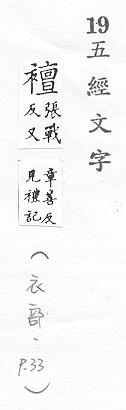 19五經文字
襢張戰反又
章善反見禮記
(衣部、P.33)